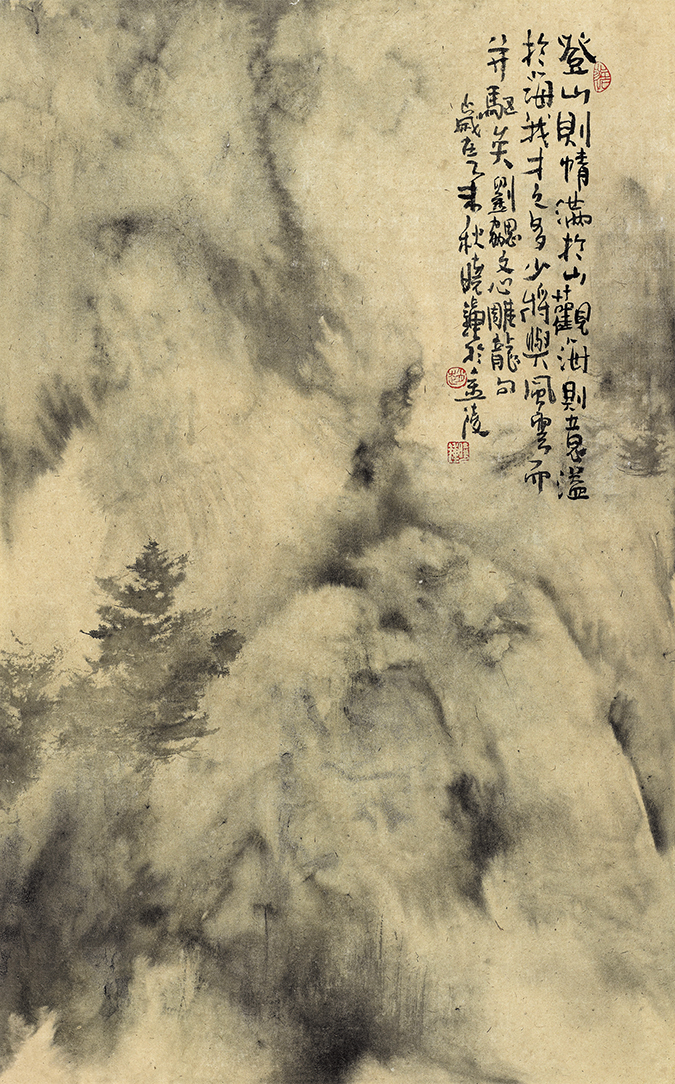 登山則情滿於山觀海則意溢
於海我才之多少將與風雲而
并驅矣劉勰文心雕龍句
歲在乙未秋曉於金陵